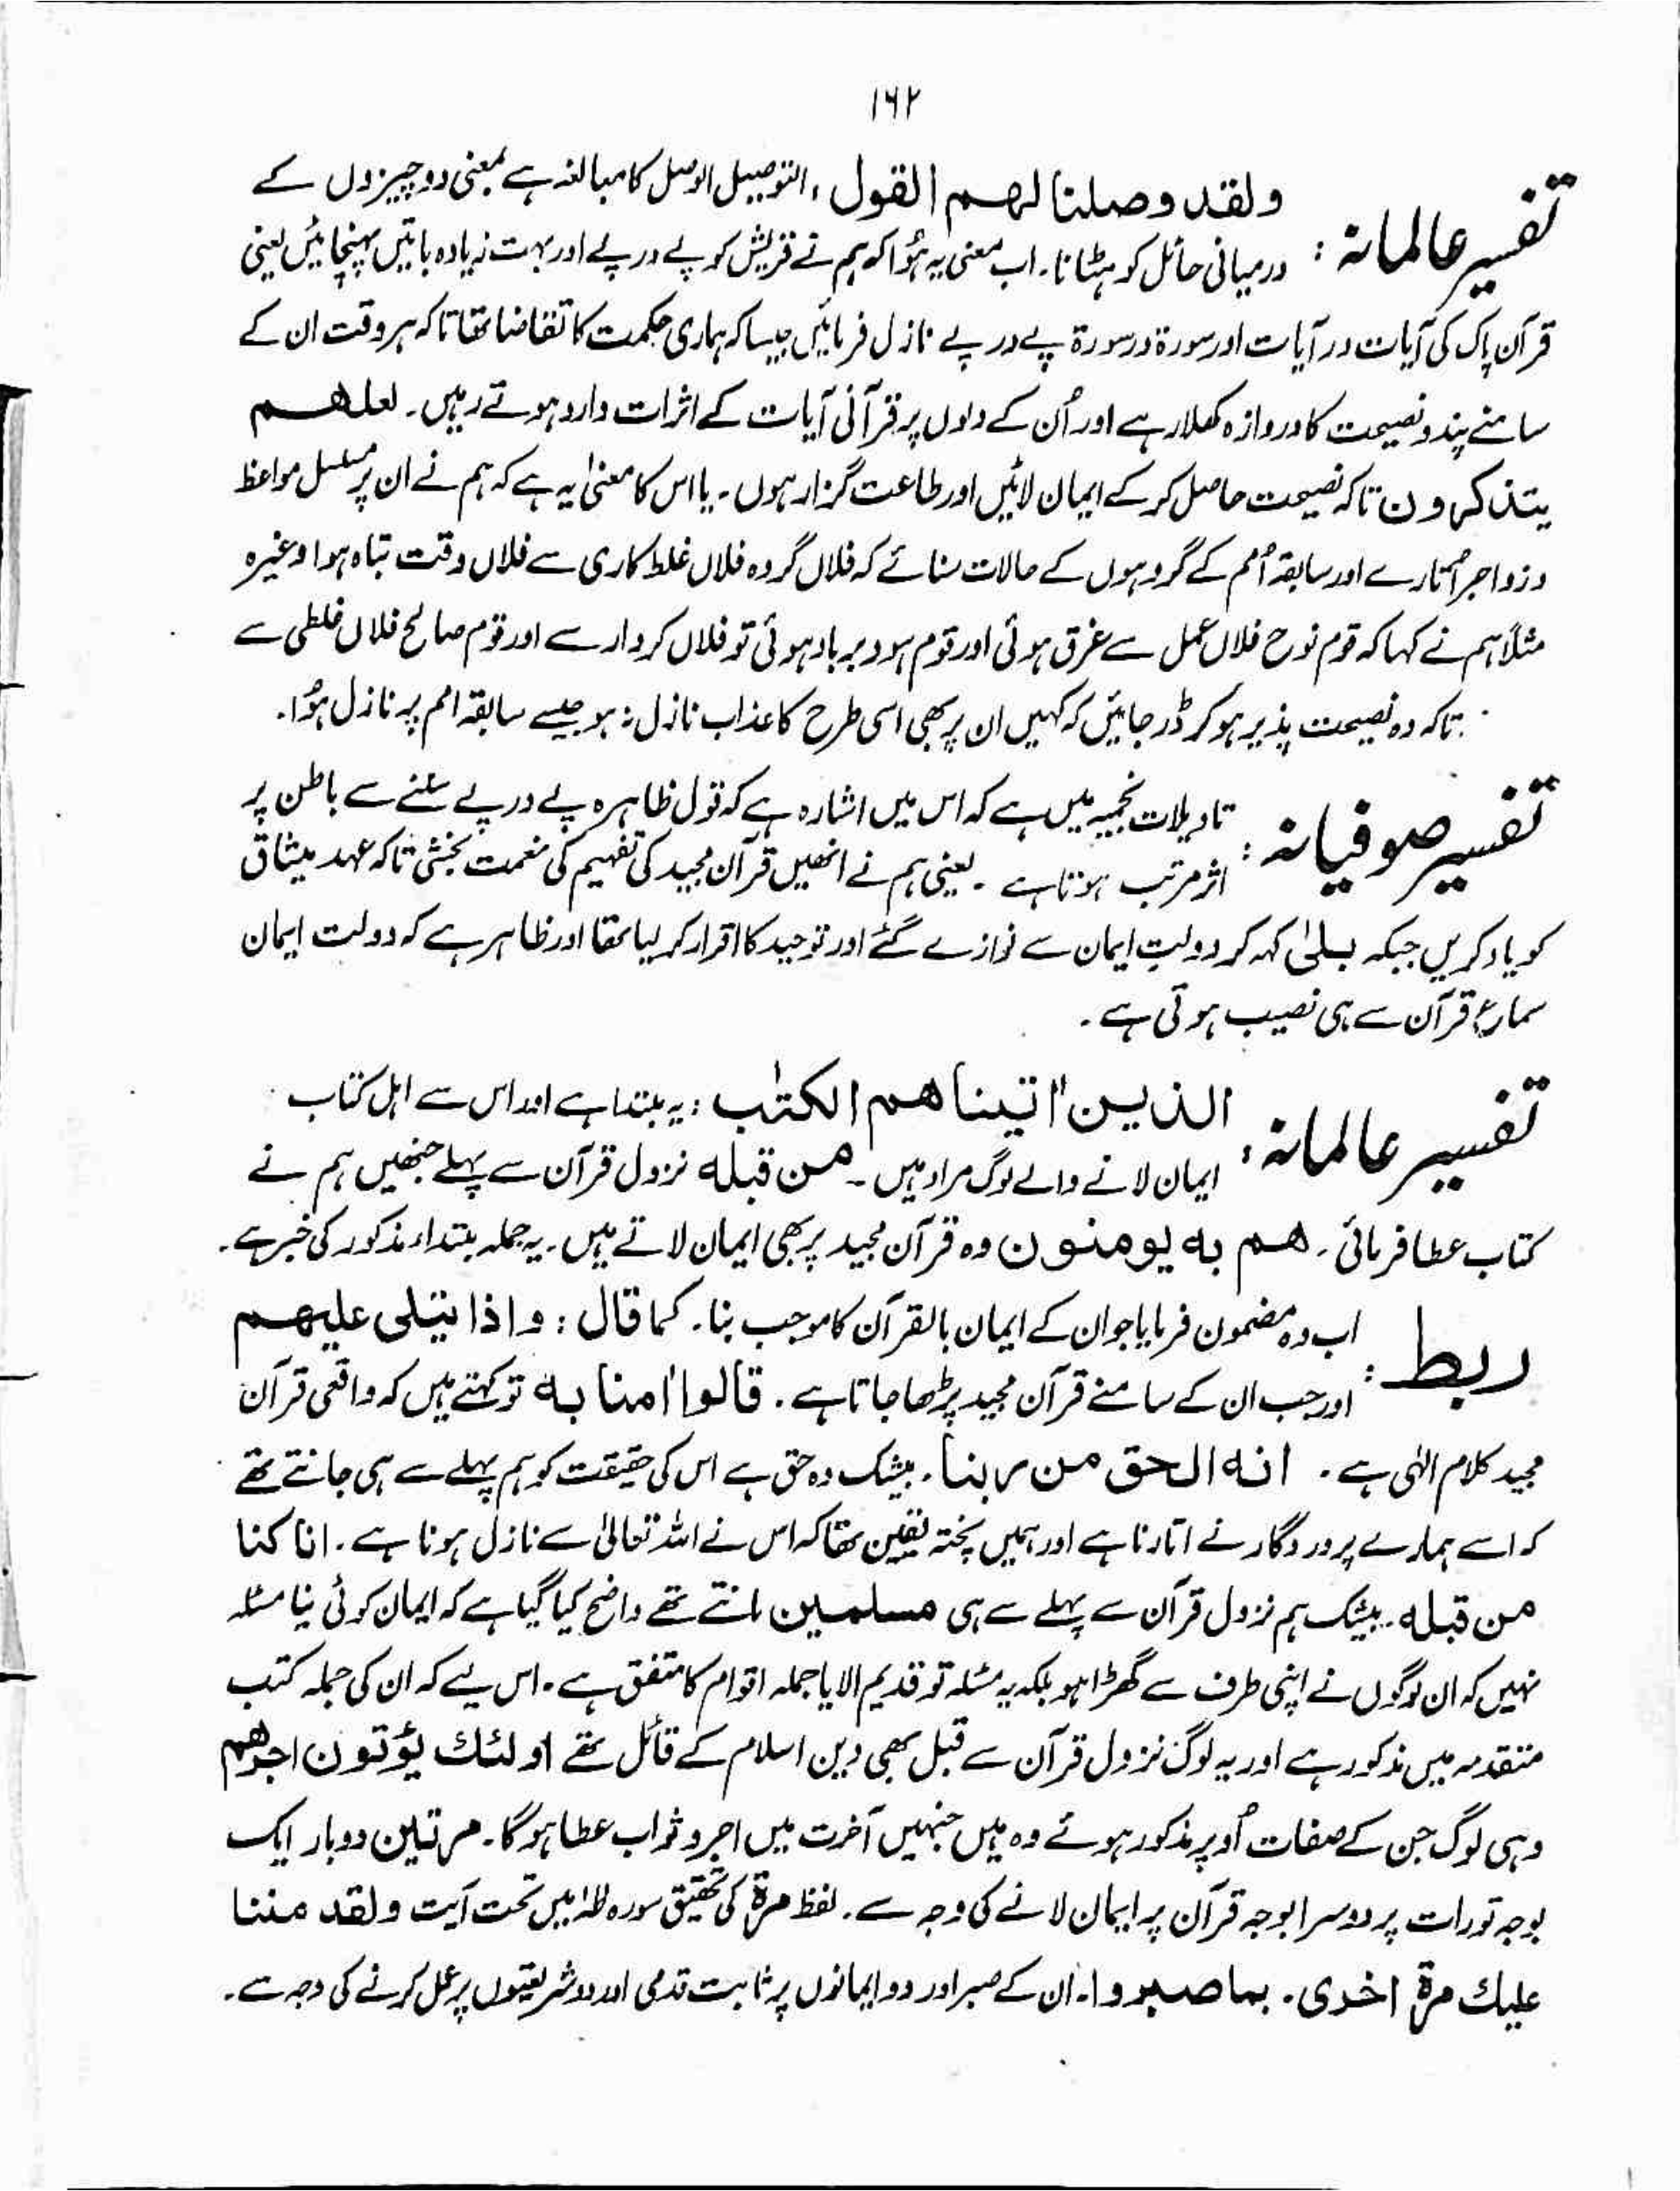 ۱۶۲
تفسیر عالمانہ : ولقد وصلنا لہم القول ، التوصیل الوصل کا مبالغہ ہے بمعنی دو چیزوں کے
درمیانی حائل کو ہٹانا ۔ اب معنی یہ ہُوا کہ ہم نے قریش کو پے در پے اور بہت زیادہ باتیں پہنچائیں یعنی
قرآن پاک کی آیات در آیات اور سورۃ در سورۃ پے در پے نازل فرمائیں جیسا کہ ہماری حکمت کا تقاضا تھا تاکہ ہر وقت ان کے
سامنے پند و نصیحت کا دروازہ کھلا رہے اور اُن کے دلوں پر قرآنی آیات کے اثرات وارد ہوتے رہیں ۔ لعلھم
یتذکرون تاکہ نصیحت حاصل کر کے ایمان لائیں اور طاعت گزار ہوں ۔ یا اس کا معنیٰ یہ ہے کہ ہم نے ان پر مسلسل مواعظ
و زواجر اُتارے اور سابقہ اُمم کے گروہوں کے حالات سنائے کہ فلاں گروہ فلاں غلط کاری سے فلاں وقت تباہ ہوا وغیرہ
مثلاً ہم نے کہا کہ قوم نوح فلاں عمل سے غرق ہوئی اور قوم ہود برباد ہوئی تو فلاں کردار سے اور قوم صالح فلاں غلطی سے
تاکہ وہ نصیحت پذیر ہو کر ڈر جائیں کہ کہیں ان پر بھی اسی طرح کا عذاب نازل نہ ہو جیسے سابقہ امم پہ نازل ہُوا ۔
تفسیر صوفیانہ : تاویلات نجمیہ میں ہے کہ اس میں اشارہ ہے کہ قول ظاہرہ پے در پے سننے سے باطن پر
اثر مرتب ہوتا ہے ۔ یعنی ہم نے انھیں قرآن مجید کی تفہیم کی نعمت بخشی تاکہ عہد میثاق
کو یاد کریں جبکہ بلیٰ کہہ کر دولتِ ایمان سے نوازے گئے اور توحید کا اقرار کر لیا تھا اور ظاہر ہے کہ دولت ایمان
سماع قرآن سے ہی نصیب ہوتی ہے ۔
تفسیر عالمانہ : الذین اٰتیناھم الکتٰب : یہ مبتدا ہے اور اس سے اہل کتاب
ایمان لانے والے لوگ مراد ہیں ۔ من قبلہ نزول قرآن سے پہلے جنھیں ہم نے
کتاب عطا فرمائی ۔ ھم بہ یومنون وہ قرآن مجید پر بھی ایمان لاتے ہیں ۔ یہ جملہ مبتداء مذکور کی خبر ہے ۔
ربط : اب وہ مضمون فرمایا جو ان کے ایمان بالقرآن کا موجب بنا ۔ کما قال : واذا یتلی علیھم
اور جب ان کے سامنے قرآن مجید پڑھا جاتا ہے ۔ قالوا اٰمنا بہ تو کہتے ہیں کہ واقعی قرآن
مجید کلام الٰہی ہے ۔ انہ الحق من ربنا ۔ بیشک وہ حق ہے اس کی حقیقت کو ہم پہلے سے ہی جانتے تھے
کہ اسے ہمارے پروردگار نے اتارنا ہے اور ہمیں پختہ یقین تھا کہ اس نے اللہ تعالیٰ سے نازل ہونا ہے ۔ انا کنا
من قبلہ ۔ بیشک ہم نزول قرآن سے پہلے سے ہی مسلمین مانتے تھے واضح کیا گیا ہے کہ ایمان کوئی نیا مسئلہ
نہیں کہ ان لوگوں نے اپنی طرف سے گھڑا ہو بلکہ یہ مسئلہ تو قدیم الایا جملہ اقوام کا متفق ہے ۔ اس لیے کہ ان کی جملہ کتب
متقدمہ میں مذکور ہے اور یہ لوگ نزول قرآن سے قبل بھی دین اسلام کے قائل تھے اولئك یؤتون اجرھم
وہی لوگ جن کے صفات اُوپر مذکور ہوئے وہ ہیں جنہیں آخرت میں اجر و ثواب عطا ہوگا ۔ مرتین دوبار ایک
بوجہ تورات پر دوسرا بوجہ قرآن پہ ایمان لانے کی وجہ سے ۔ لفظ مرۃ کی تحقیق سورہ طہٰ میں تحت آیت ولقد مننا
علیك مرۃ اخری ۔ بما صبروا ۔ ان کے صبر اور دو ایمانوں پر ثابت قدمی اور دو شریعتوں پر عمل کرنے کی وجہ سے ۔